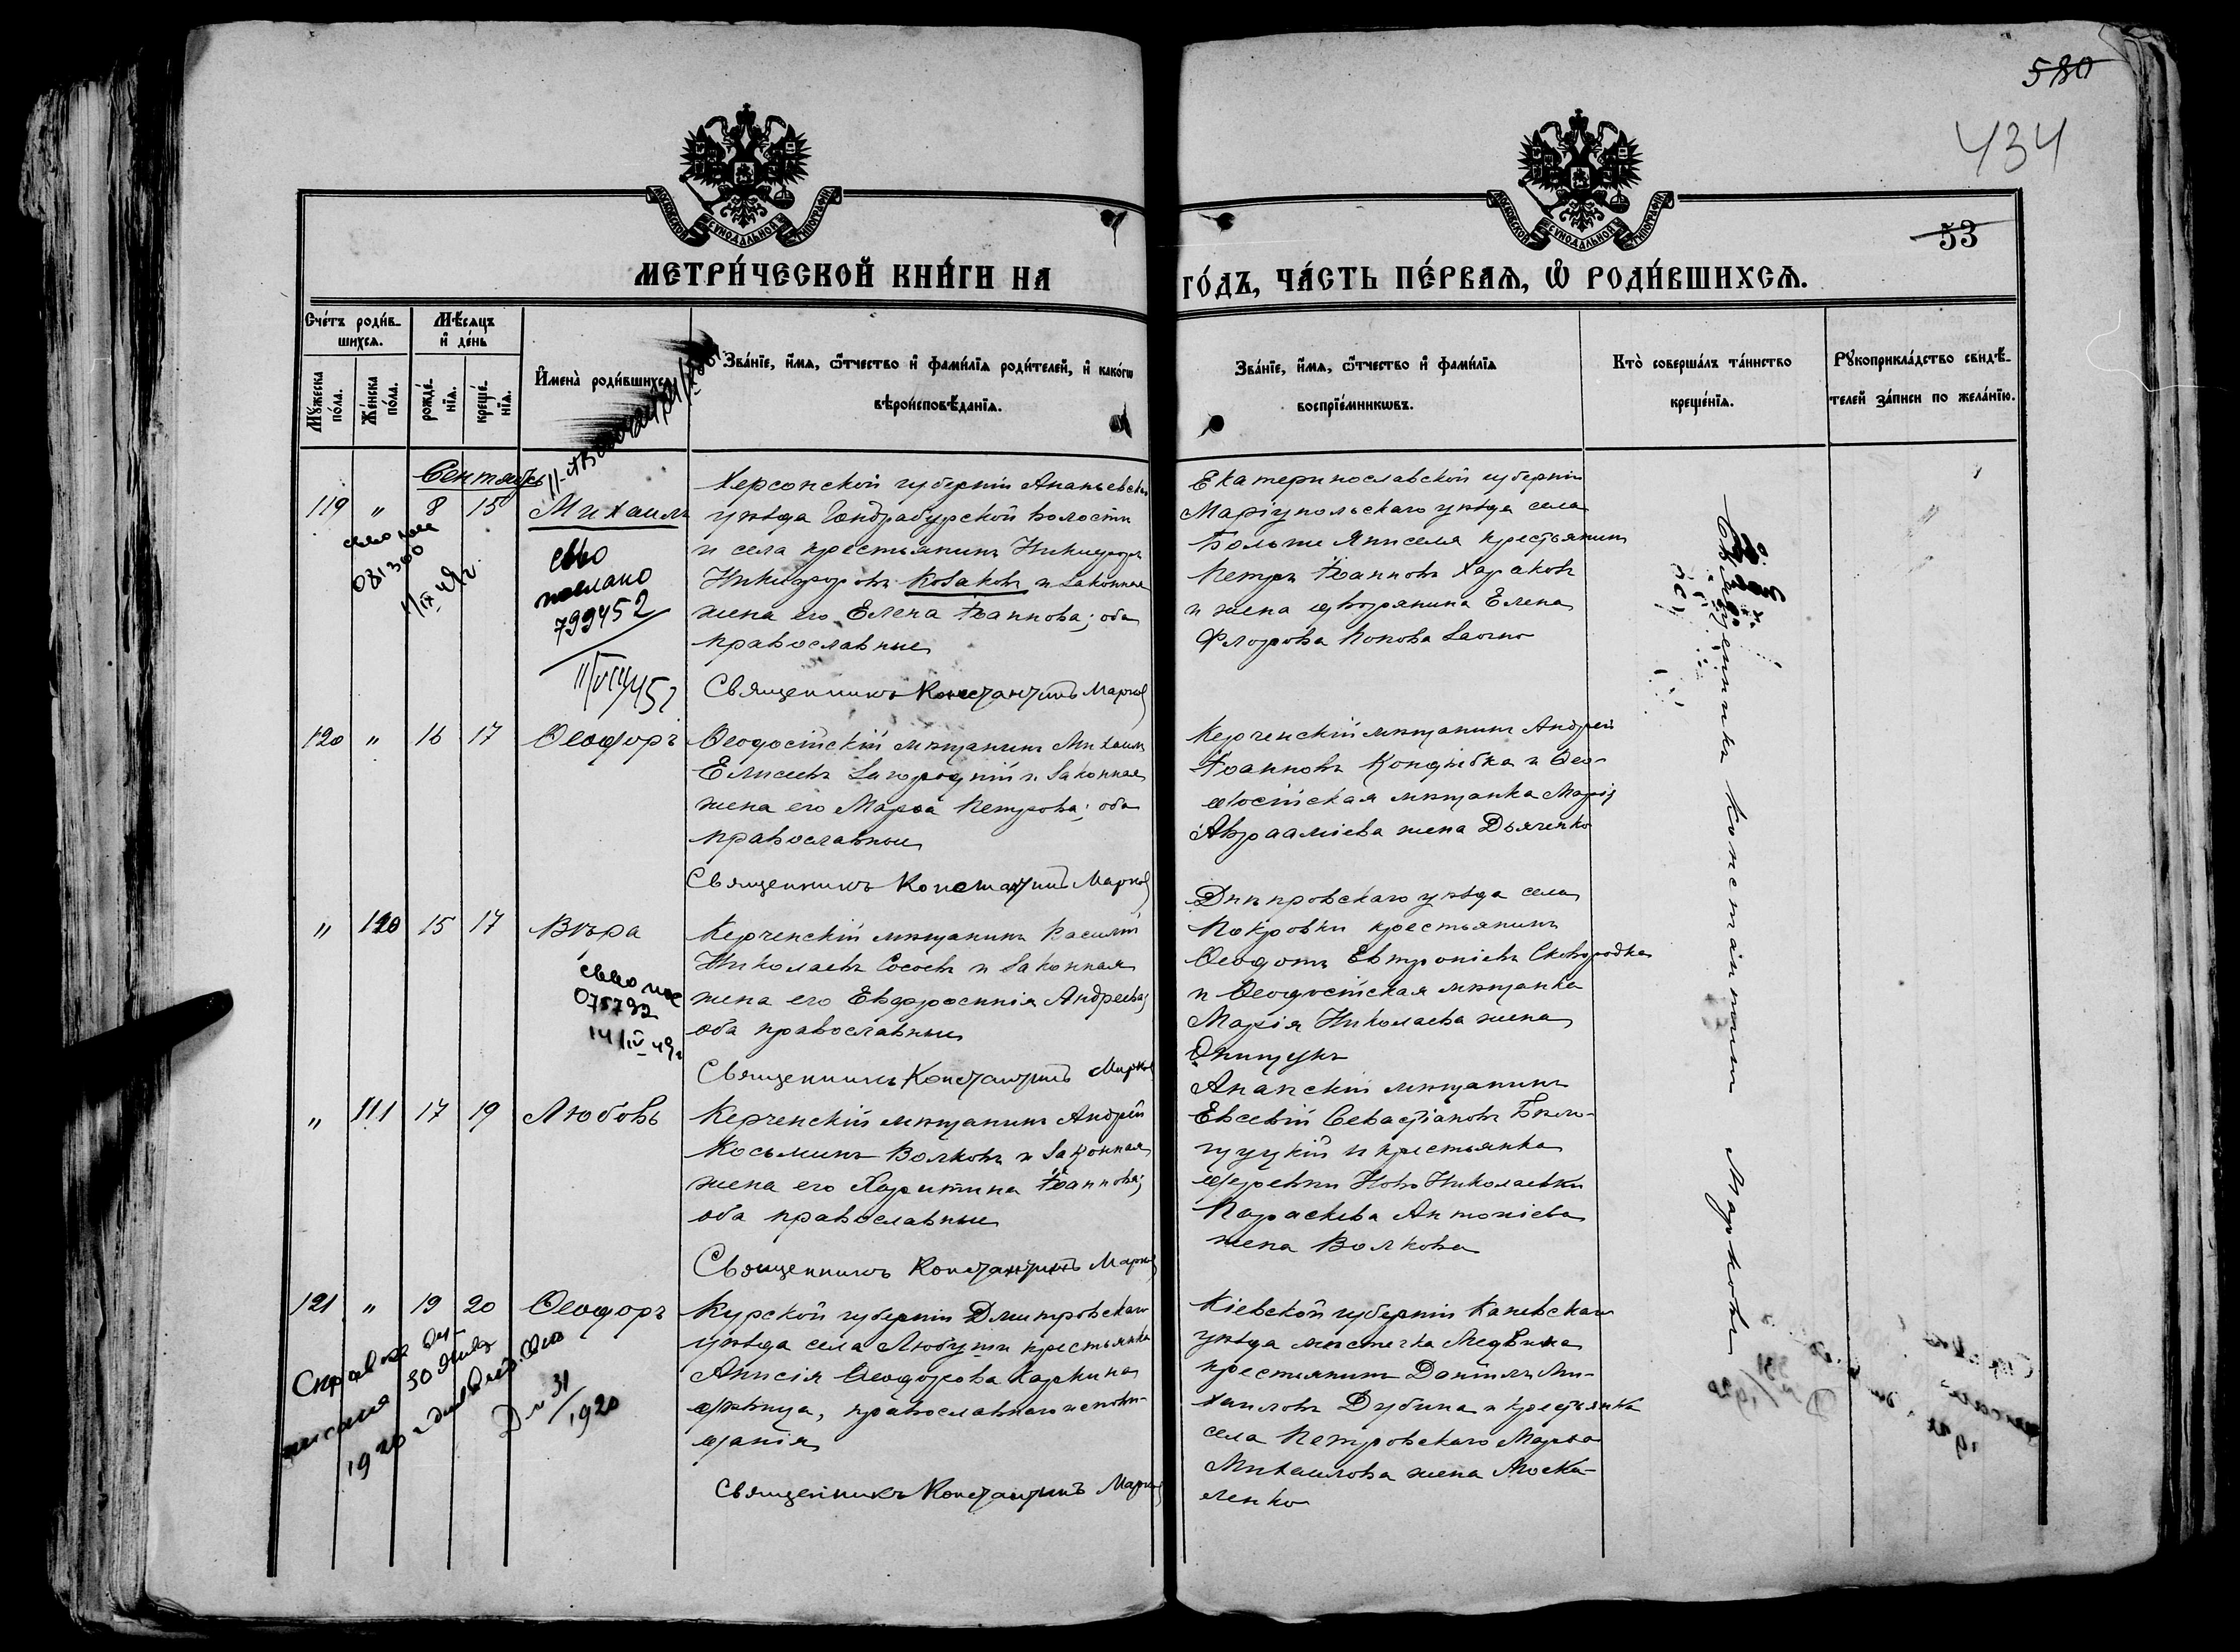 580
434
53
МОСКОВСКОЙ СУНОДАЛЬНОЙ ТИПОГРАФІИ
МОСКОВСКОЙ СУНОДАЛЬНОЙ ТИПОГРАФІИ
МЕТРИ́ЧЕСКОЙ КНИ́ГИ НА
ГО́ДЪ, ЧА́СТЬ ПЕ́РВАѦ, Ѡ҆ РОДИ́ВШИХСѦ.
Сче́тъ роди́в-
шихсѧ.
Мѣ́сѧцъ
и҆ де́нь
Мꙋ́жеска
по́ла.
Же́нска
по́ла.
рожде́-
нїѧ.
креще́-
нїѧ.
И҆мена̀ роди́вшихсѧ.
Зва́нїе, и҆́мѧ, ѻ҆́тчество и҆ фами́лїѧ роди́телей, и҆ како́гѡ
вѣроисповѣ́данїѧ.
Зва́нїе, и҆́мѧ, ѻ҆́тчество и҆ фами́лїѧ
воспрїе́мникѡвъ.
Кто̀ соверша́лъ та́инство
креще́нїѧ.
Рꙋкоприкла́дство свидѣ́-
телей за́писи по жела́нїю.
Сентябрь
119 " 8 15 Михаилъ
Херсонской губерніи Ананьевскаго
уѣзда Гандрабурской волости
и села крестьянинъ Никифоръ
Никифоровъ Козаковъ и законная
жена его Елена Іоаннова; оба
православные
Священникъ Константинъ Марковъ
Екатеринославской губерніи
Маріупольскаго уѣзда села
Больше Янисаля крестьянинъ
Петръ Іоанновъ Хараковъ
и жена дворянина Елена
Флорова Попова
081300
1/IX 49г.
сво
послано
799452
11/VIII 45г
120 " 16 17 Ѳеодоръ
Ѳеодосійскій мѣщанинъ Михаилъ
Елисеевъ Загородній и законная
жена его Марѳа Петрова; оба
православные
Священникъ Константинъ Марковъ
Керченскій мѣщанинъ Андрей
Іоанновъ Кондыбка и Ѳео-
досійская мѣщанка Марія
Авраамієва жена Дьяченко
" 110 15 17 Вѣра
Керченскій мѣщанинъ Василій
Николаевъ Сосоевъ и законная
жена его Евфросинія Андреева;
оба православные
Священникъ Константинъ Марковъ
Днѣпровскаго уѣзда села
Покровки крестьянинъ
Ѳеодотъ Евтропіевъ Сковородка
и Ѳеодосійская мѣщанка
Марія Николаева жена
Онищукъ
075792
14/IV 49г
" 111 17 19 Любовь
Керченскій мѣщанинъ Андрей
Косьминъ Волковъ и законная
жена его Харитина Іоаннова;
оба православные
Священникъ Константинъ Марковъ
Анапскій мѣщанинъ
Евсевій Севастіановъ Бѣло-
цуцкій и крестьянка
деревни Ново Николаевки
Параскева Антоніева
жена Волкова
121 " 19 20 Ѳеодоръ
Курской губерніи Дмитровскаго
уѣзда села Любуши крестьянка
Анисія Ѳеодорова Каркина
дѣвица, православнаго исповѣ-
данія
Священникъ Константинъ Марковъ
Кіевской губерніи Каневскаго
уѣзда мѣстечка Медвина
крестьянинъ Даніилъ Ми-
хаиловъ Дубина и крестьянка
села Петровскаго Марѳа
Михаилова жена Моска-
ленко
Справка вы-
писана 30 Янв
1920
Д № 31/1920
Священникъ Константинъ Марковъ